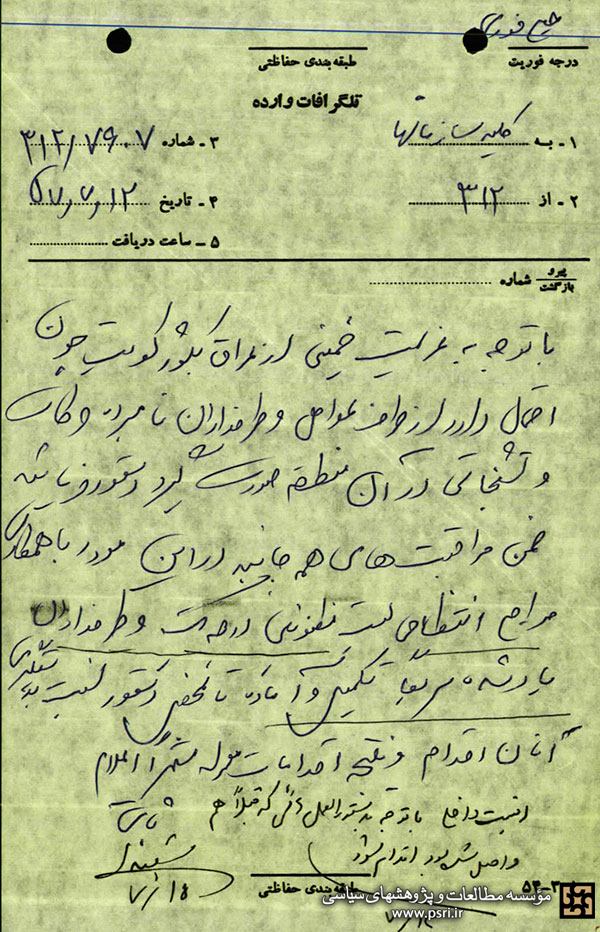 خیلی فوری
درجه فوریت
طبقه‌بندی حفاظتی
تلگرافات وارده
۱ - به کلیه سازمانها
۳ - شماره ۳۱۲/۷۹۰۷
۲ - از ۳۱۲
۴ - تاریخ ۵۷٫۷٫۱۲
۵ - ساعت دریافت
پیرو
بازگشت
شماره
با توجه به عزیمت خمینی از عراق بکشور کویت چون
احتمال دارد از طرف عوامل و طرفداران نامبرده
و تشنجاتی در آن منطقه صورت گیرد دستور فرمایید
ضمن مراقبت‌های همه جانبه در این مورد با همکاری
مراجع انتظامی لیست مظنونین و طرفداران
یاد شده سریعاً تکمیل و آماده تا بمحض دستور نسبت به دستگیری
آنان اقدام و نتیجه اقدامات معموله مشروحاً اعلام
امنیت داخلی با توجه بدستورالعمل که قبلاً هم
ثابتی
واصل شده بود اقدام شود
۷/۱۵
طبقه‌بندی حفاظتی
مؤسسه مطالعات و پژوهشهای سیاسی
www.psri.ir